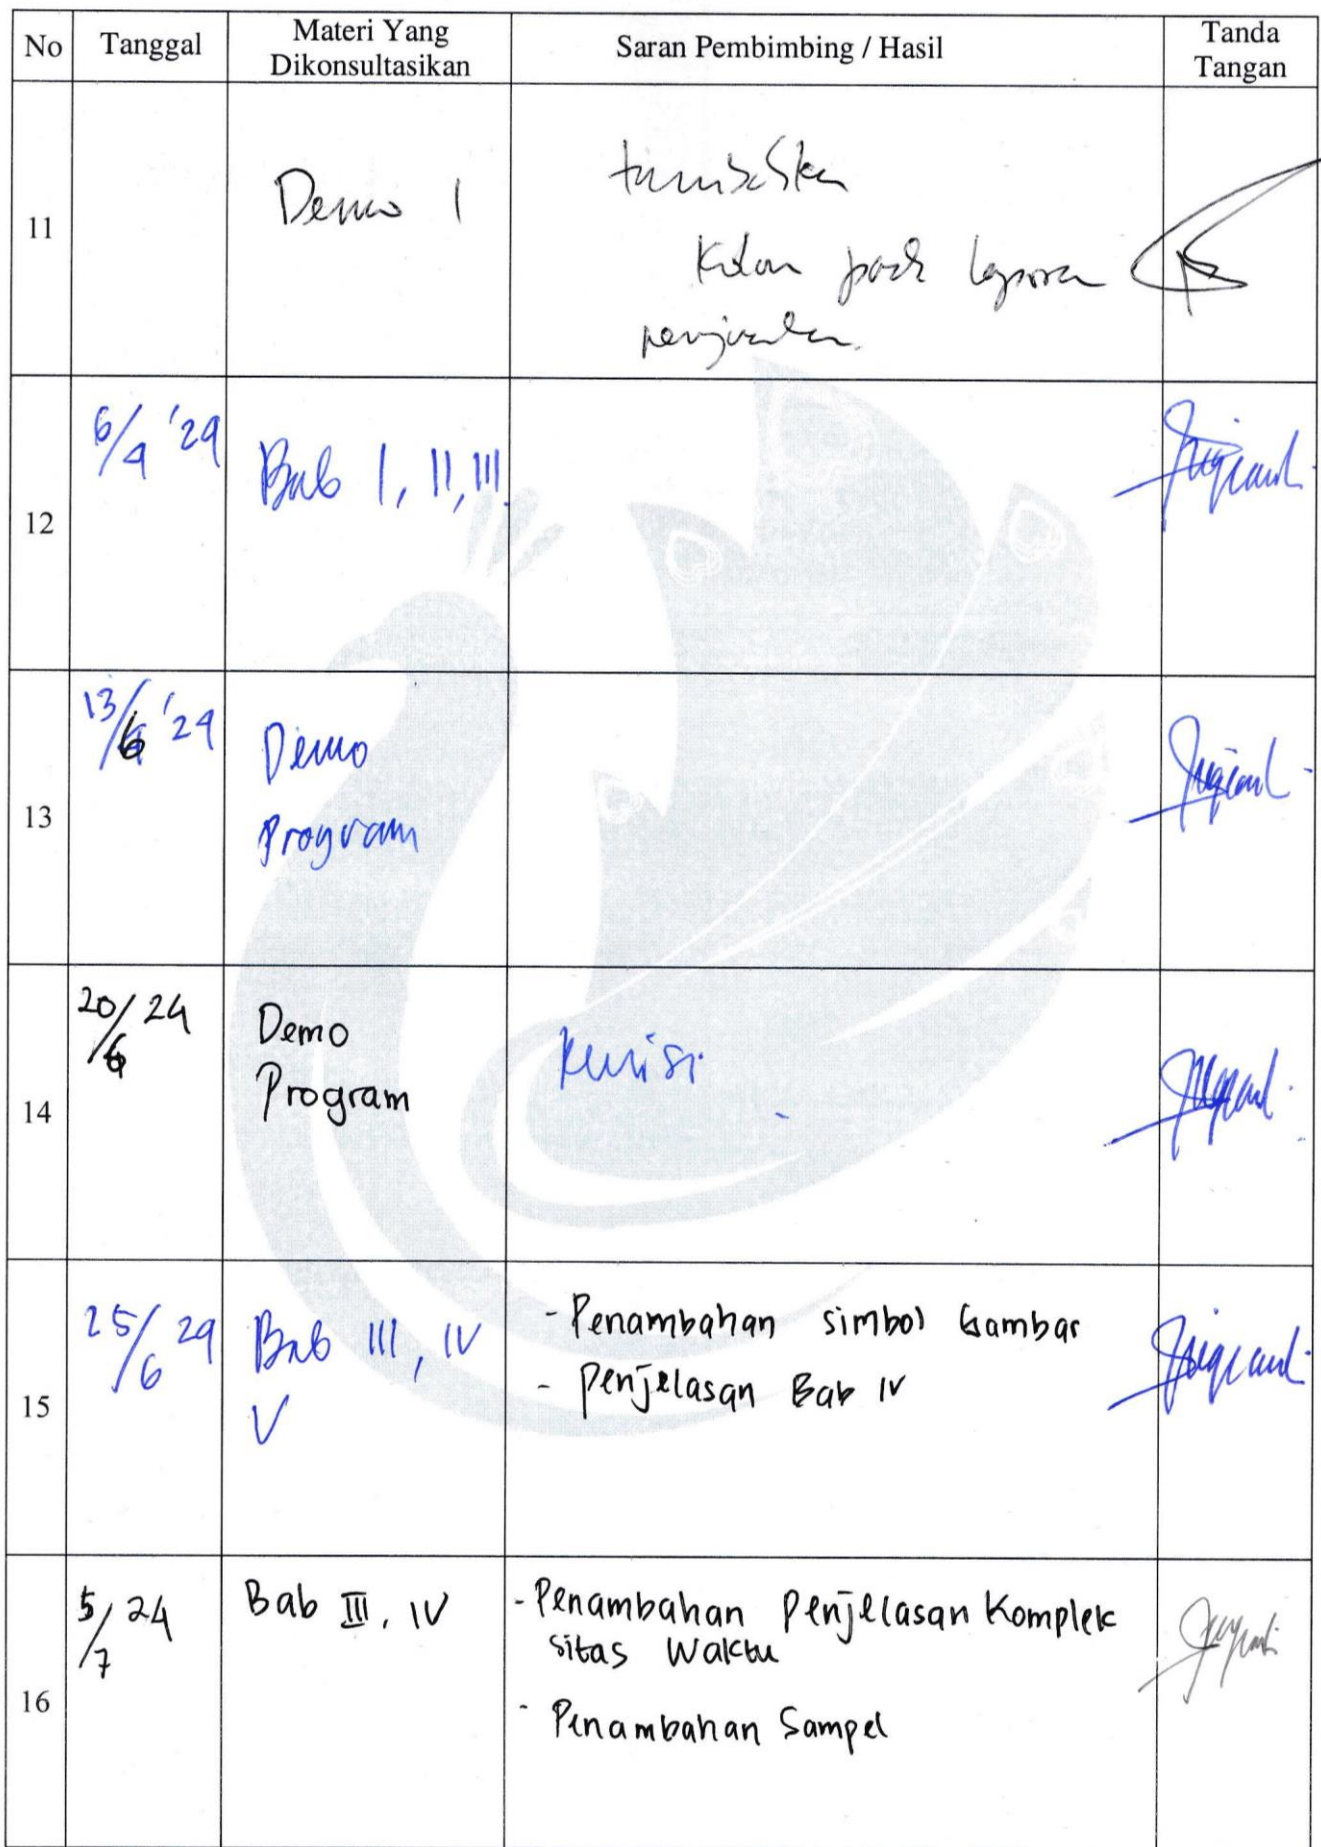 No Tanggal Materi Yang Dikonsultasikan Saran Pembimbing / Hasil Tanda Tangan
11 Demo 1 tambahkan
pada laporan
penjualan.
12 6/4 '24 Bab I, II, III.
13 13/6 '24 Demo
Program
14 20/6 24 Demo Revisi
Program
15 25/6 24 Bab III, IV - Penambahan simbol Gambar
V - Penjelasan Bab IV
16 5/7 24 Bab III, IV - Penambahan Penjelasan Komplek
sitas Waktu
- Penambahan Sampel